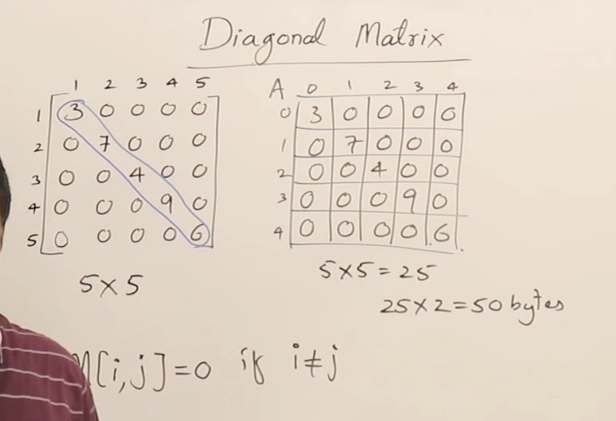 Diagonal Matrix
1 2 3 4 5
1 3 0 0 0 0
2 0 7 0 0 0
3 0 0 4 0 0
4 0 0 0 9 0
5 0 0 0 0 6
5×5
A 0 1 2 3 4
0 3 0 0 0 0
1 0 7 0 0 0
2 0 0 4 0 0
3 0 0 0 9 0
4 0 0 0 0 6
5×5=25
25×2=50bytes
M[i,j]=0 if i≠j